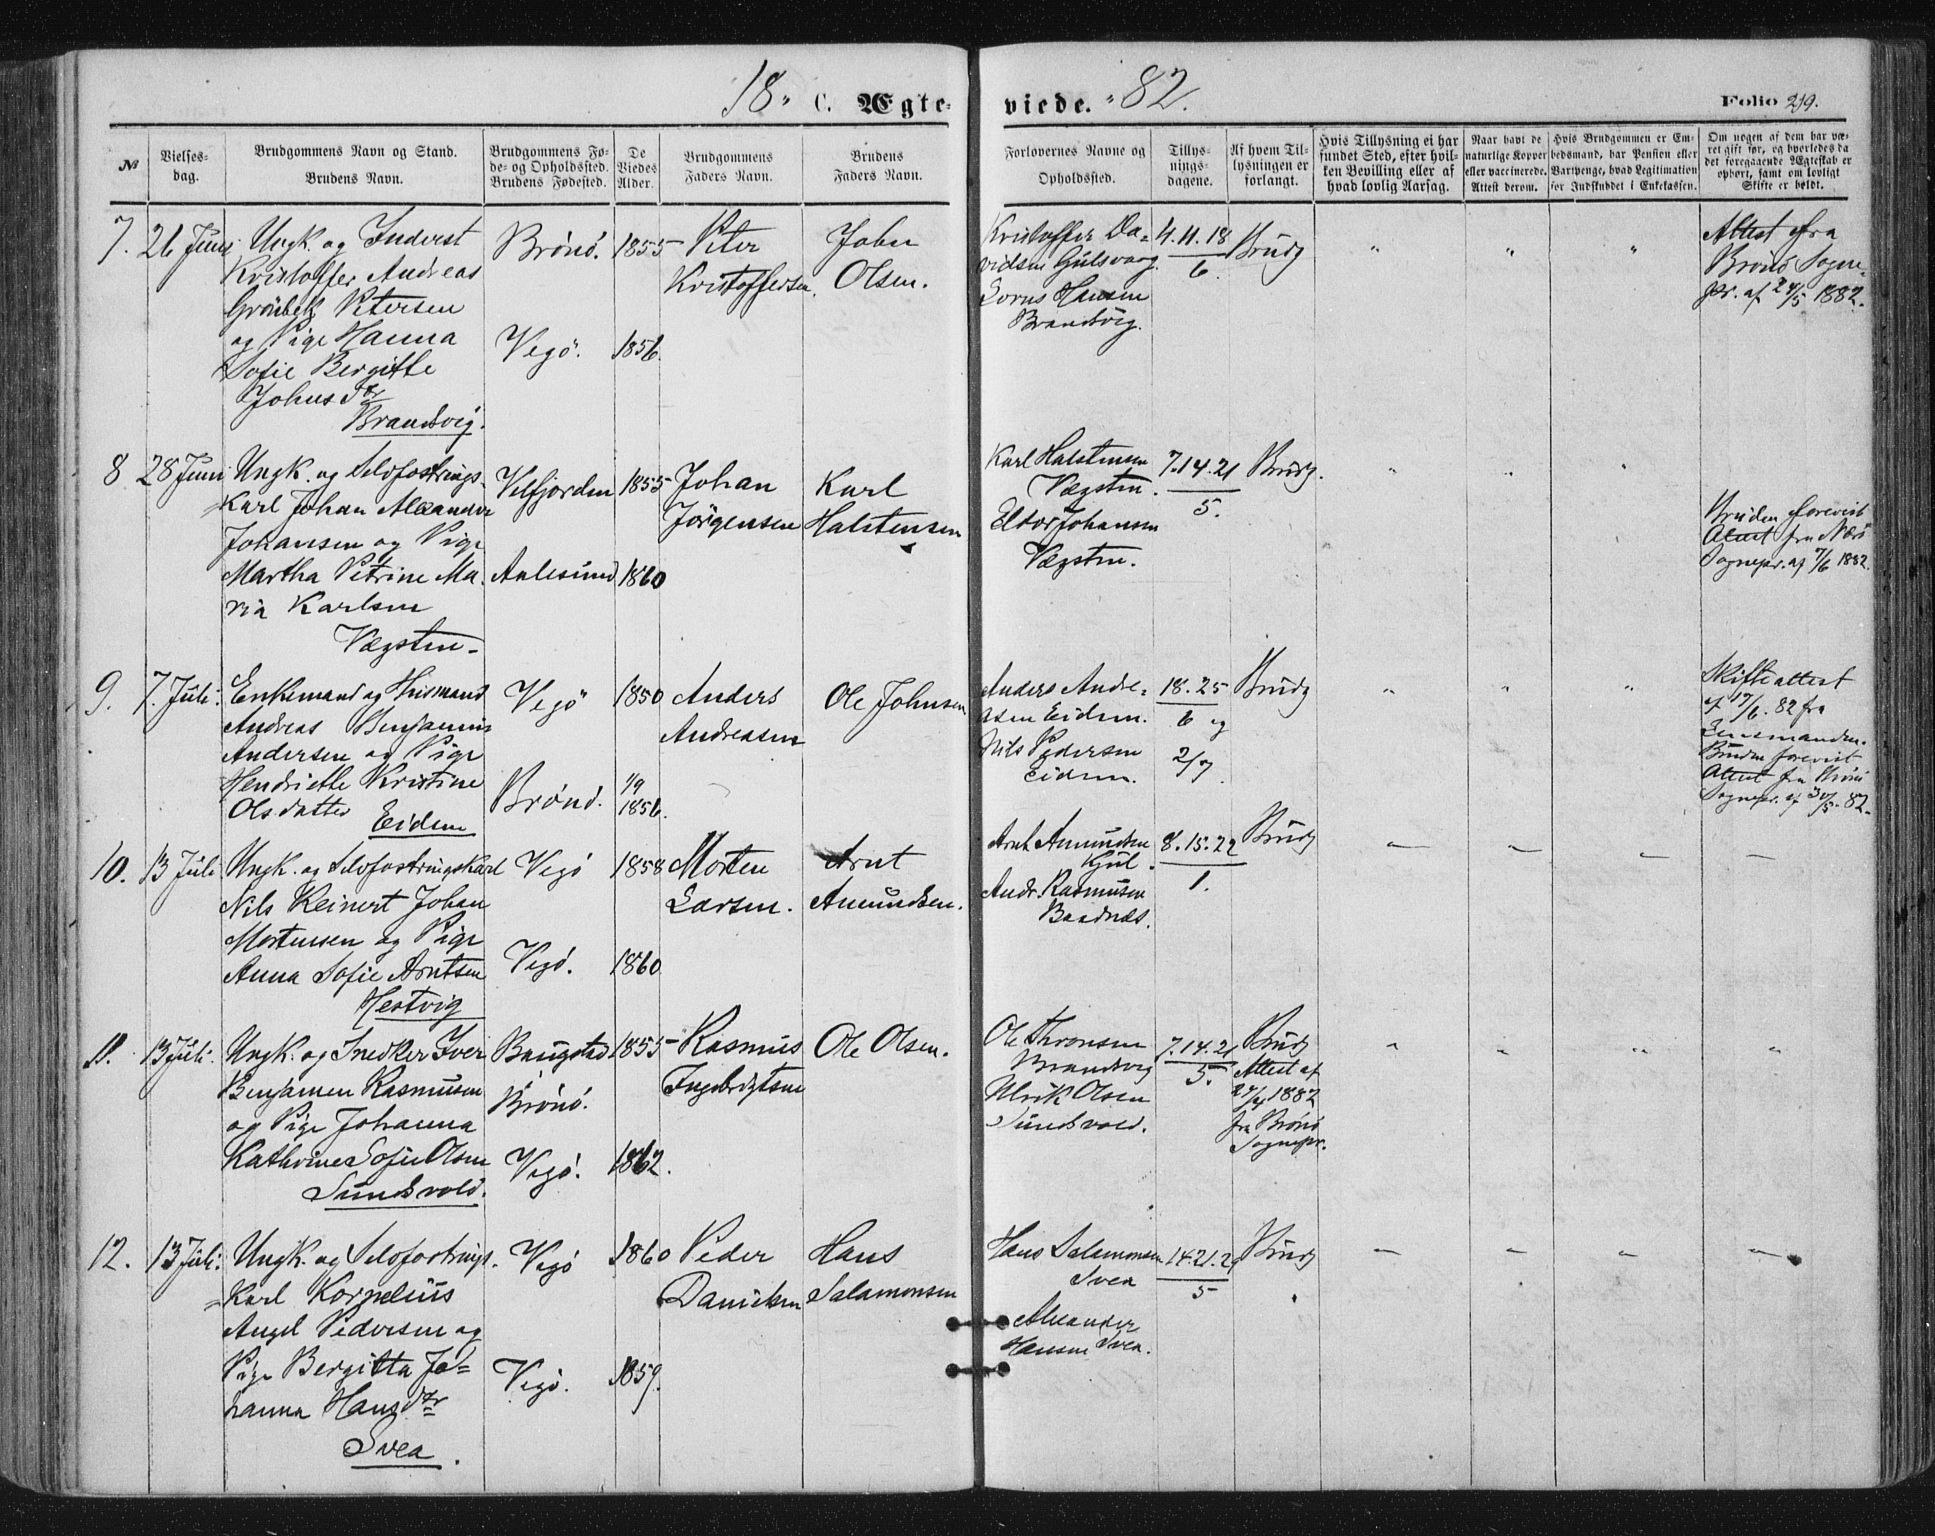 18 " C. Ægte-
viede. " 82.
Folio 219.
№
Vielses-
dag.
Brudgommens Navn og Stand.
Brudens Navn.
Brudgommens Fø-
de- og Opholdssted.
Brudens Fødested.
De
Viedes
Alder.
Brudgommens
Faders Navn.
Brudens
Faders Navn.
Forlovernes Navne og
Opholdssted.
Tillys-
nings-
dagene.
Af hvem Til-
lysningen er
forlangt.
Hvis Tillysning ei har
fundet Sted, efter hvil-
ken Bevilling eller af
hvad lovlig Aarsag.
Naar havt de
naturlige Kopper
eller vaccinerede.
Attest derom.
Hvis Brudgommen er Em-
bedsmand, har Pension eller
Vartpenge, hvad Legitimation
for Indskuddet i Enkekassen.
Om nogen af dem har væ-
ret gift før, og hvorledes da
det foregaaende Ægteskab er
ophørt, samt om lovligt
Skifte er holdt.
7. 26 Juni
Ungk. og Inderst
Kristoffer Andreas
Grönbek Petersen
og Pige Hanna
Sofie Bergitte
Johnsdtr
Brandsvig.
Brönö.
Vegö.
1855
1856.
Peter
Kristoffersen.
John
Olsen.
Kristoffer Da=
vidsen Gulsvaag.
Sorns Hansen
Brandsvig.
4.11.18
6.
Brudg
" " "
Attest fra
Brönö Sogne-
pr. af 24/5 1882.
8 28 Juni
Ungk. og Selvfostrings-
=Karl Johan Alexander
Johansen og Pige
Martha Petrine Ma-
ria Karlsen
Vægsten-
Velfjorden
Aalesund
1855
1860
Johan
Jörgensen
Karl
Halstensen
Karl Halstensen
Vægsten.
Eldor Johansen
Vægsten.
7.14.21
5.
Brudg.
" " "
Bruden forevist
Attest fra Nærö
Sognepr. af 7/6 1882.
9. 7. Juli.
Enkemand og Husmand
Andreas Benjamin
Andersen og Pige
Hendriette Kristine
Olsdatter
Eidem
Vegö
Brönö.
1850
1/9
1856.
Anders
Andreasen
Ole Johnsen
Anders Andre-
asen Eidem.
Nils Pedersen
Eidem.
18.25
6 og
2/7
Brudg
" " "
Skifteattest
af 17/6. 82 fra
Lensmanden.
Bruden forevist
Attest fra Brönö
Sognepr. af 30/5. 82.
10. 13 Juli
Ungk. og Selvfostringskarl
Nils Reinert Johan
Mortensen og Pige
Anna Sofie Arntsen
Hestvig
Vegö
Vegö.
1858
1860
Morten
Larsen.
Arnt
Amundsen.
Arnt Amundsen
Kjul.
Andr. Rasmusen
Bandnæs.
8.15.22
1.
Brudg
- - - -
11. 13 Juli.
Ungk. og Snedker Iver
Benjamen Rasmusen
og Pige Johanna
Kathrine Sofie Olsen
Sundsvold.
Baugstad
i
Brönö.
Vegö.
1855
1862.
Rasmus
Ingebrigtsen
Ole Olsen.
Ole Thronsen
Brandsvig
Ulrik Olsen
Sundsvold.
7.14.21
5.
Brudg
Attest af
27/4 1882
fra Brönö
Sognepr.
" " " "
12. 13 Juli.
Ungk. og Selvfostrings-
=Karl Kornelius
Angel Pedersen og
Pige Bergitta Jo=
hanna Hansdtr
Svea.
Vegö
Vegö.
1860
1859.
Peder
Danielsen
Hans
Salamonsen
Hans Salamonsen
Svea
Alexander
Hansen Svea.
14.21.29
5
Brudg
- - - -